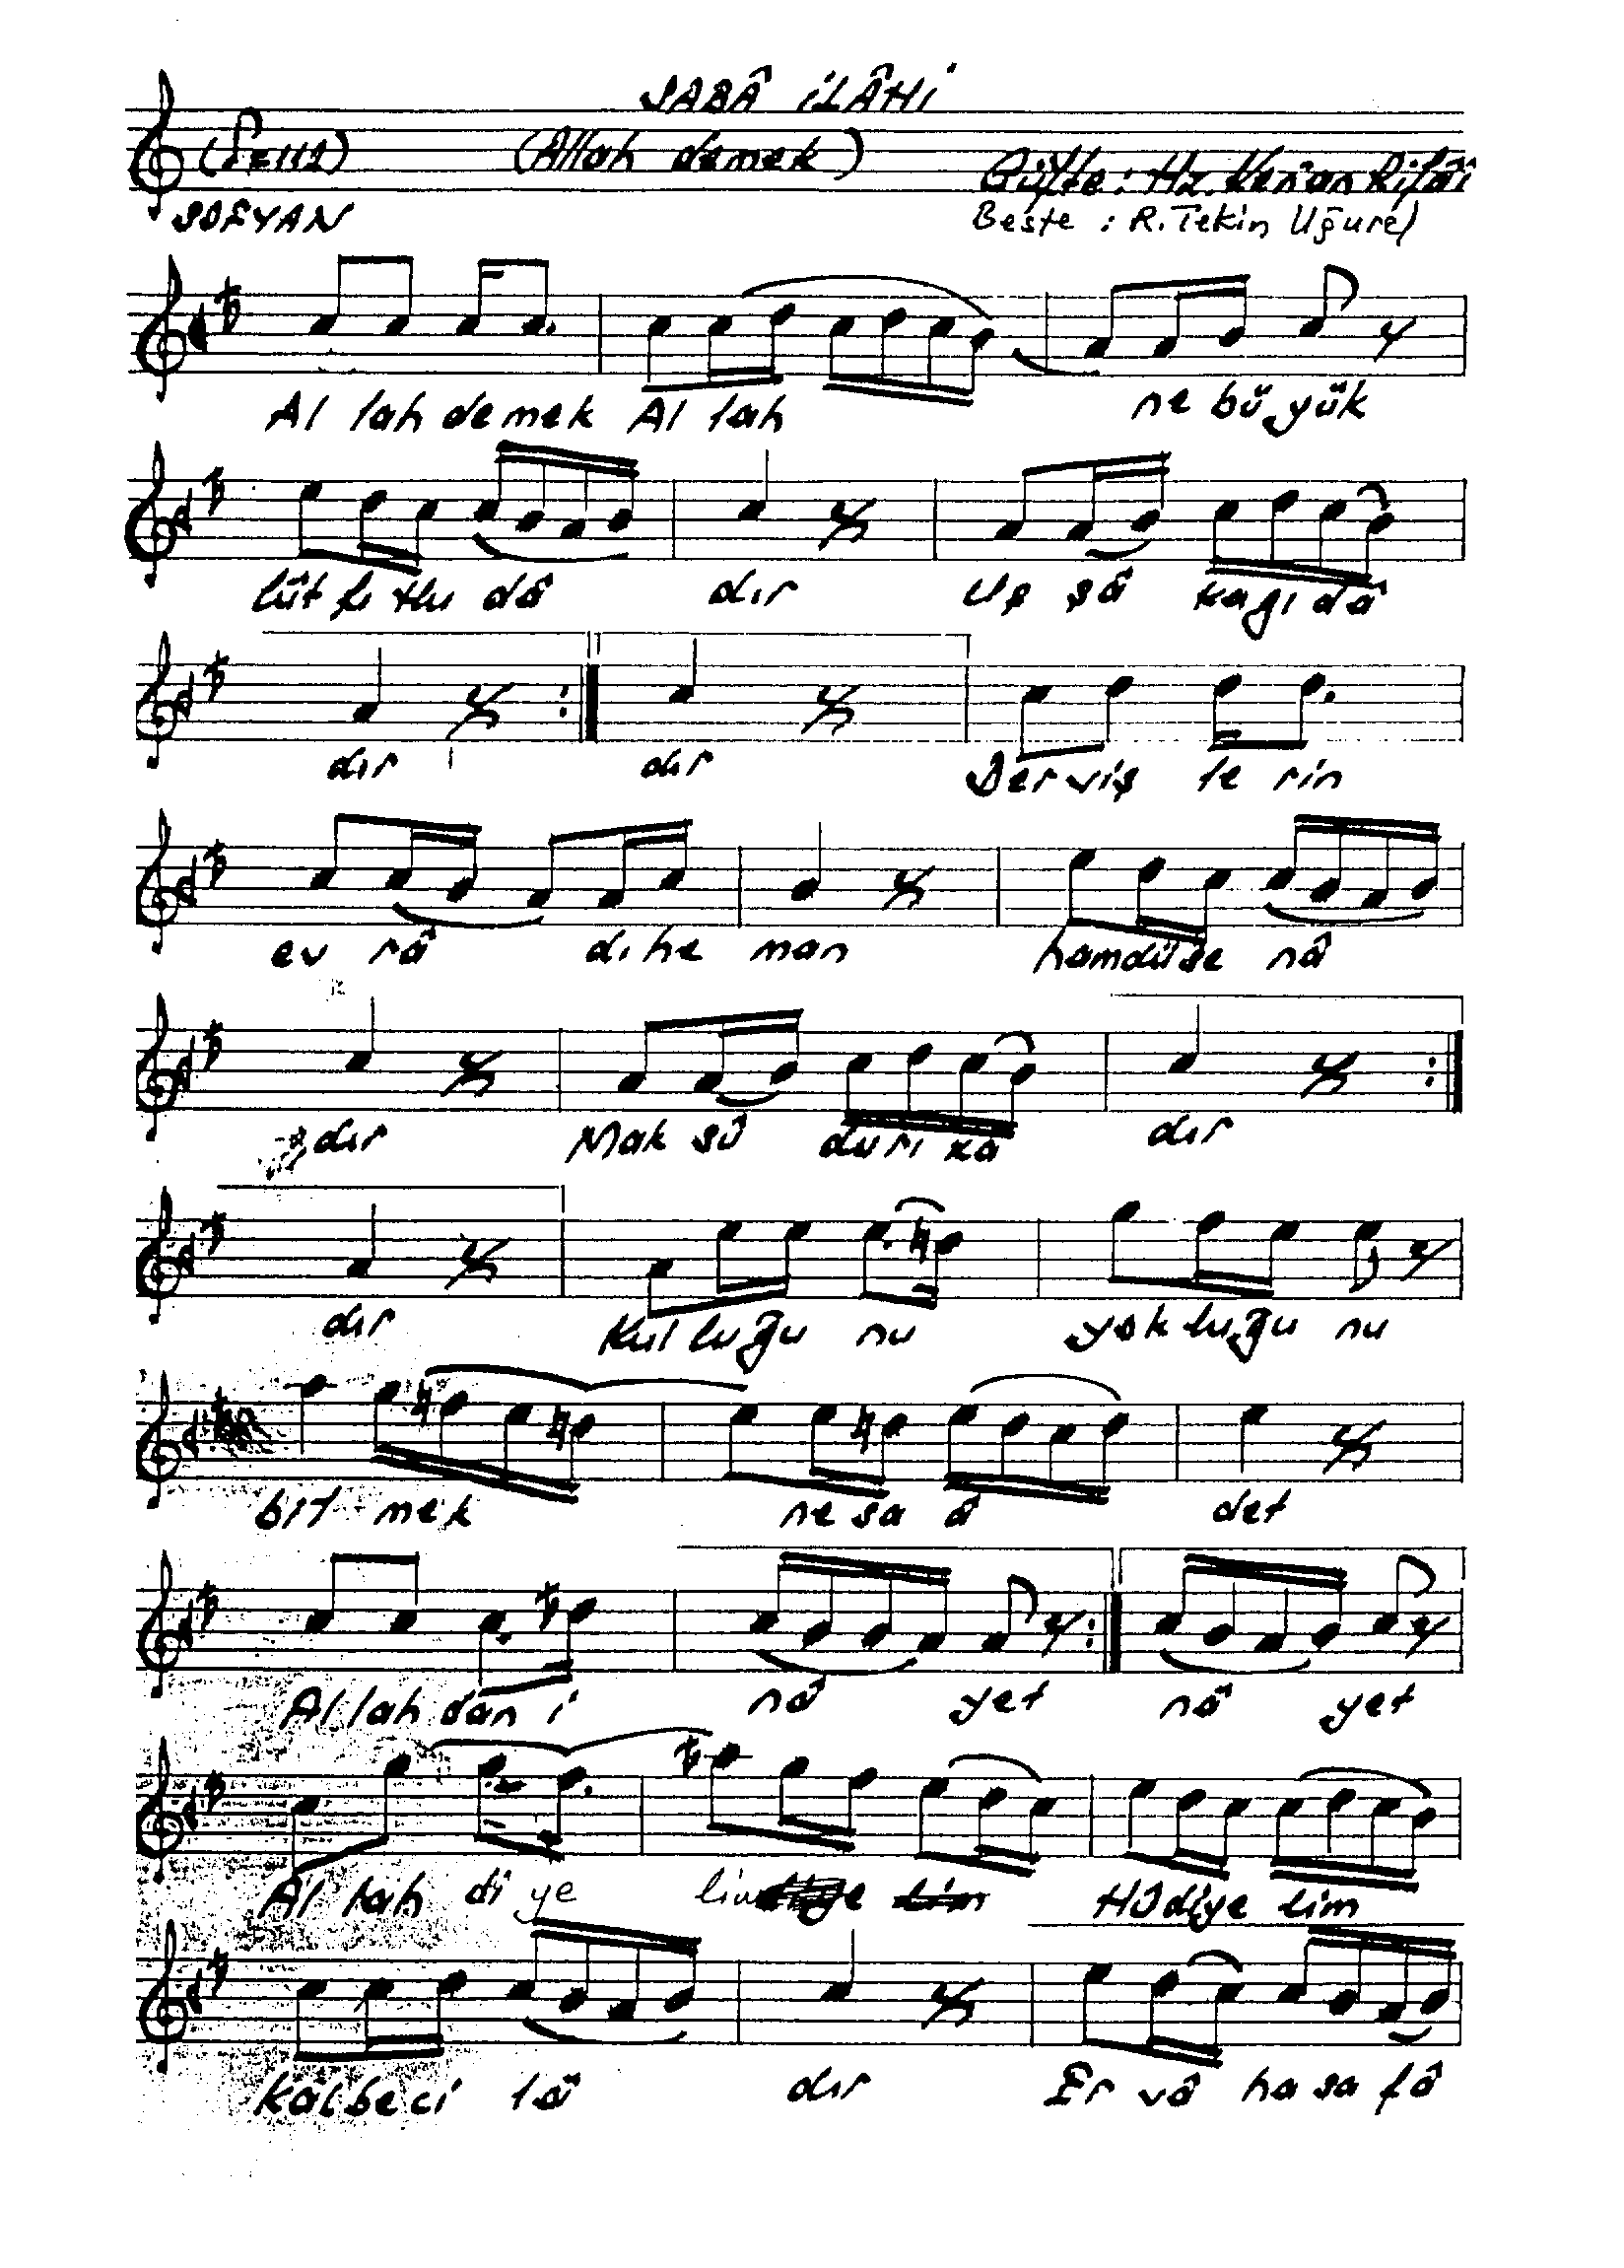 SABÂ İLÂHİ
(♪=112) (Allah demek) Güfte: Hz. Ken'an Rifâî
SOFYAN Beste : R. Tekin Uğurel
Al lah demek Al lah ne bü yük
lût fı dâ dır Uş şâ kagı dâ
dır dır Der viş le rin
ev râ dı he man hamdü se nâ
dır Mak sû du rı za dır
dır Kul luğu nu yok luğu nu
bil - mek ne sa â det
Al lah dan i nâ yet nâ yet
Al lah di ye lim Hû diye lim
Kal be ci lâ dır Er vâ ha sa fâ